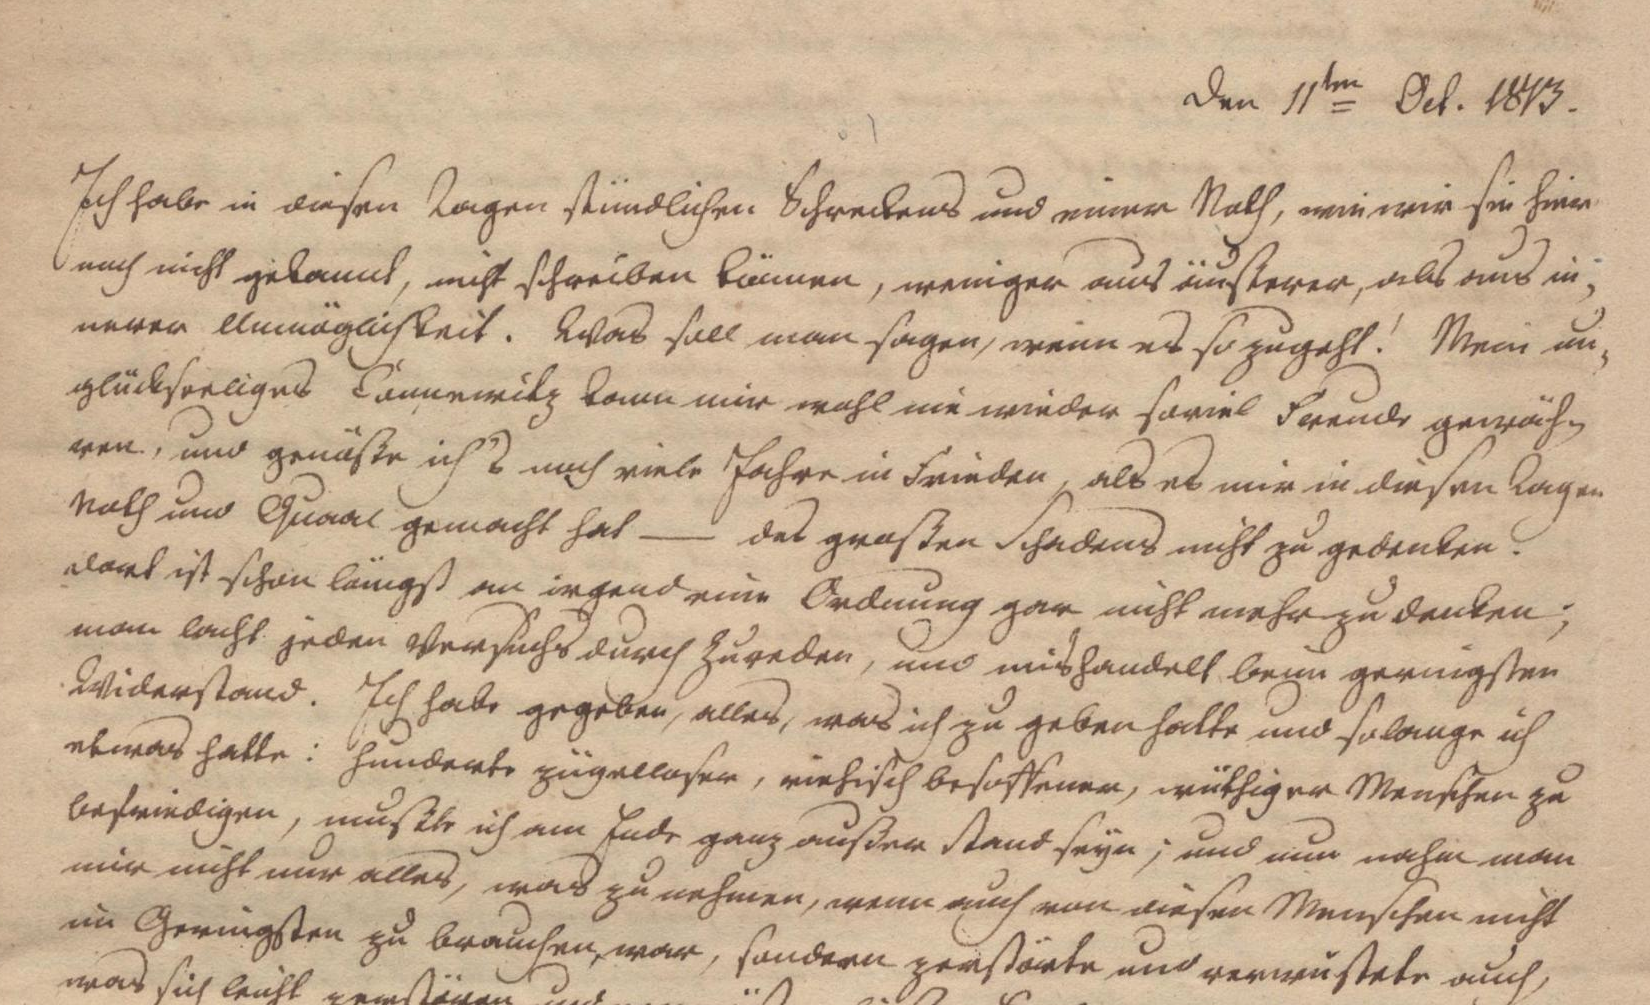 Den 11ten Oct. 1813.
Ich habe in diesen Tagen stündlichen Schreckens und einer Noth, wie wir sie hier
noch nicht gekannt, nicht schreiben können, weniger aus äußerer, als aus in-
nerer Unmöglichkeit. Was soll man sagen, wenn es so zugeht! Mein un-
glückseeliges Connewitz kann mir wohl nie wieder soviel Freude gewäh-
ren, und genösse ich's noch viele Jahre in Frieden, als es mir in diesen Tagen
Noth und Quaal gemacht hat — des großen Schadens nicht zu gedenken.
Dort ist schon längst an irgend eine Ordnung gar nicht mehr zu denken;
man lacht jeden Versuchs durch Zureden, und mishandelt beim geringsten
Widerstand. Ich habe gegeben, alles, was ich zu geben hatte und solange ich
etwas hatte: hunderte zügelloser, viehisch besoffener, wüthiger Menschen zu
befriedigen, mußte ich am Ende ganz außer Stand seyn; und nun nahm man
mir nicht nur alles, was zu nehmen, wenn auch von diesen Menschen nicht
im Geringsten zu brauchen, war, sondern zerstörte und verwüstete auch,
was sich leicht zerstören und